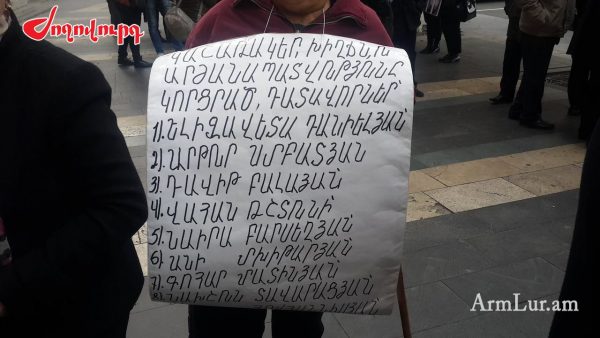 Ժողովուրդ
ԿԱՇԱՌԱԿԵՐ ԽԻՂՃՆ ՈՒ
ԱՐԺԱՆԱՊԱՏՎՈՒԹՅՈՒՆԸ
ԿՈՐՑՐԱԾ, ԴԱՏԱՎՈՐՆԵՐ՝
1). ԵԼԻԶԱՎԵՏԱ ԴԱՆԻԵԼՅԱՆ
2). ԱՐԹՈՒՐ ՍՄԲԱՏՅԱՆ
3). ԴԱՎԻԹ ԲԱԼԱՅԱՆ
4). ՎԱՀԱՆ ՌՇՏՈՒՆԻ
5). ՆԱԻՐԱ ԲԱՐՍԵՂՅԱՆ
6). ԱՆԻ ՄԽԻԹԱՐՅԱՆ
7). ԳՈՀԱՐ ՄԱՏԻՆՅԱՆ
8). ՆԱԽՇՈՒՆ ՏԱՎԱՐԱՑՅԱՆ
ArmLur.am